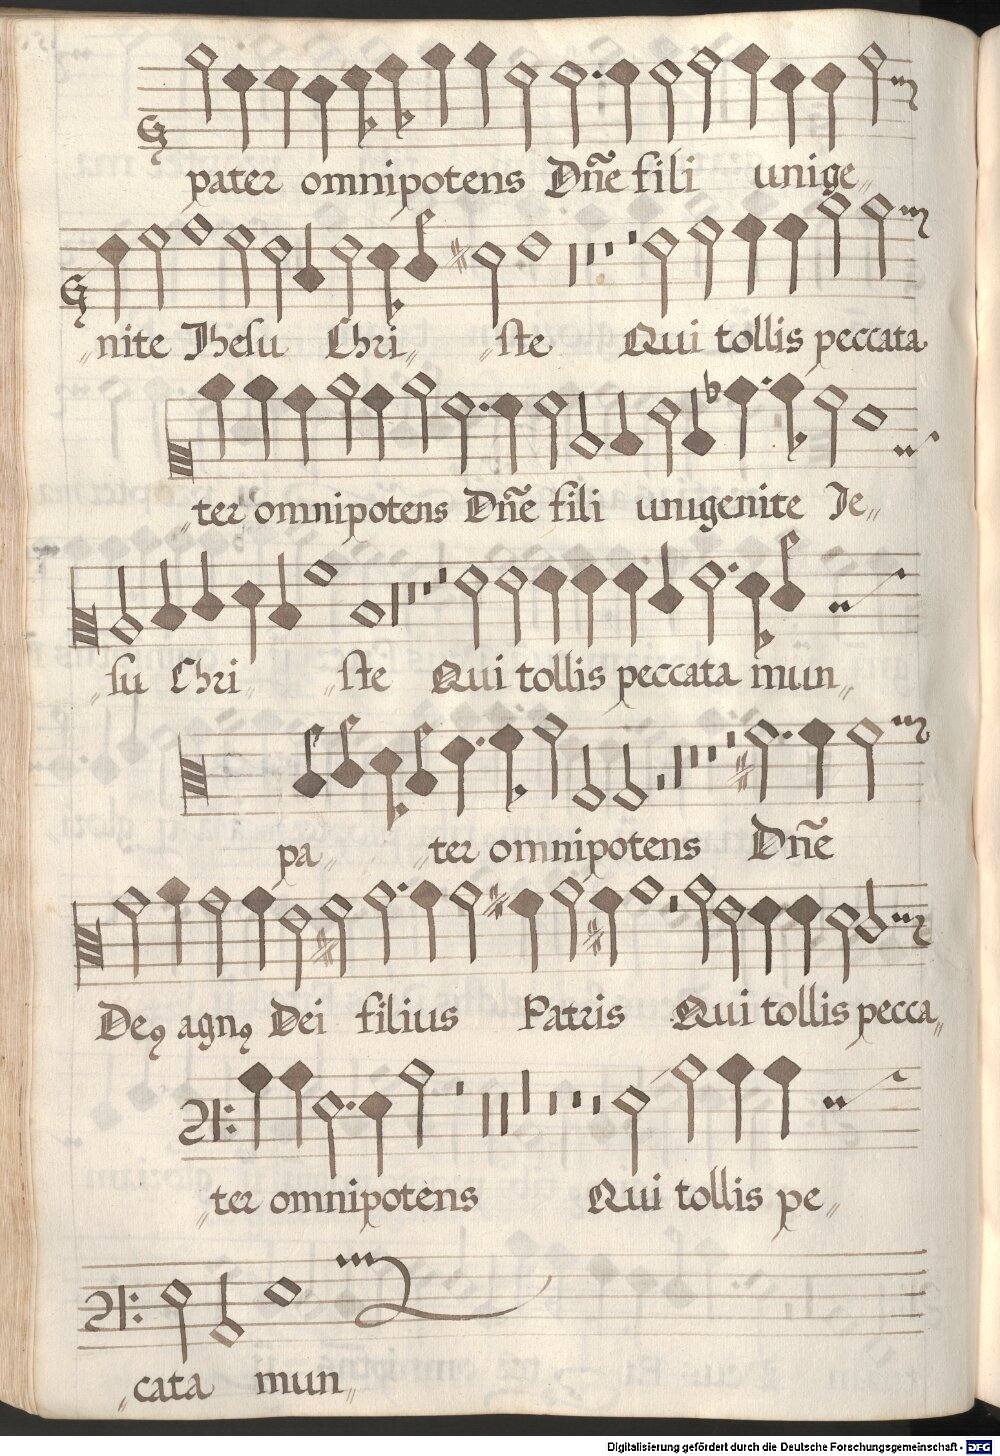 pater omnipotens Dñe fili unige„
„nite Jhesu Chri„ „ste Qui tollis peccata
„ter omnipotens Dñe fili unigenite Je„
„su Chri„ „ste Qui tollis peccata mun„
pa„ „ter omnipotens Dñe
Deꝯ agnꝯ Dei filius Patris Qui tollis pecca„
„ter omnipotens Qui tollis pe„
„cata mun„
Digitalisierung gefördert durch die Deutsche Forschungsgemeinschaft - DFG